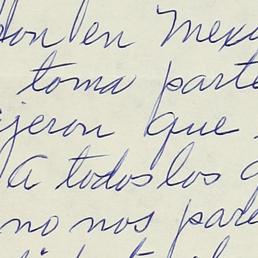 en Mexi
toma parte
jeron que
A todos los
no nos pare